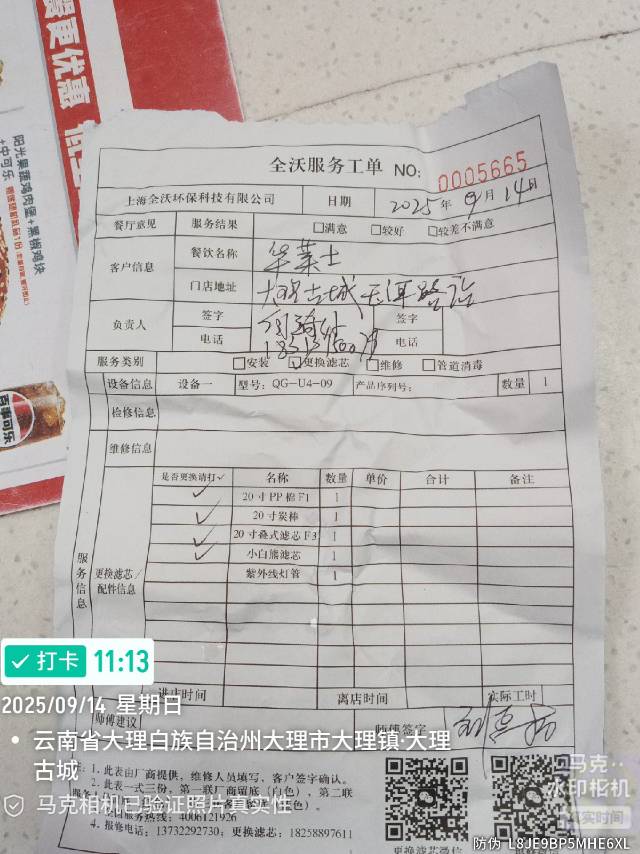 阳光果蔬鸡肉堡+果椒鸡块
+中可乐
百事可乐
全沃服务工单 NO: 0005665
上海全沃环保科技有限公司 日期 2025年 9月 14日
餐厅意见 服务结果 □满意 □较好 □较差不满意
客户信息 餐饮名称 华莱士
门店地址
负责人 签字 签字
电话 电话
服务类别 □安装 ☑更换滤芯 □维修 □管道消毒
设备信息 设备一 型号: QG-U4-09 产品序列号: 数量 1
检修信息
维修信息
服务信息
更换滤芯/配件信息
是否更换请打✓ 名称 数量 单价 合计 备注
✓ 20寸PP棉F1 1
✓ 20寸炭棒 1
✓ 20寸叠式滤芯F3 1
✓ 小白熊滤芯 1
紫外线灯管 1
进店时间 离店时间 实际工时
师傅建议 师傅签字
注: 1. 此表由厂商提供，维修人员填写，客户签字确认。
2. 此表一式三份，第一联厂商留底（白色），第二联
服务热线: 4006121926
4. 报修电话: 13732292730; 更换滤芯: 18258897611
更换滤芯微信
打卡 11:13
2025/09/14 星期日
云南省大理白族自治州大理市大理镇·大理
古城
马克相机已验证照片真实性
马克
水印相机
真实时间
防伪 L8JE9BP5MHE6XL